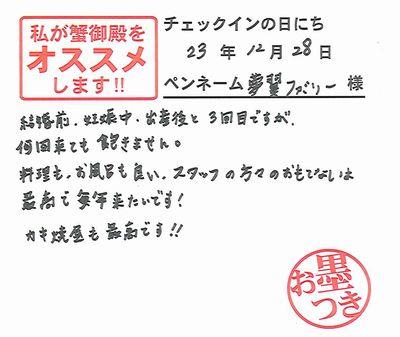 私が蟹御殿を
オススメ
します!!
チェックインの日にち
23 年 12 月 28 日
ペンネーム 夢翼ファミリー 様
結婚前、妊娠中、出産後と3回目ですが、
何回来ても 飽きません。
料理も、お風呂も良い、スタッフの方々のおもてないは
最高で毎年来たいです!
カキ焼屋も最高です!!
お墨
つき